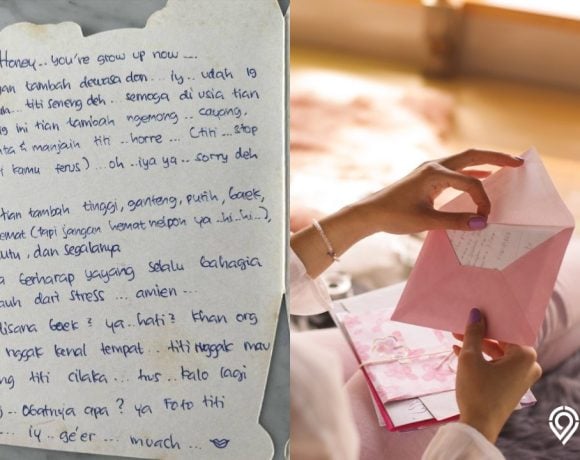 Honey... you're grow up now ....
tambah dewasa dan ... iy.. udah 19
titi seneng deh . semoga di usia tian
ini tian tambah ngemong .. cayang,
& manjain titi .. horre ... (titi ... stop
kamu terus) ... oh .. iya ya .. sorry deh
tian tambah tinggi, ganteng, putih, baek,
(tapi jangan hemat nelpon ya ..hi..hi...),
, dan segalanya
berharap yayang selalu bahagia
dari stress ... amien ...
disana baek? ya.. hati? khan org
nggak kenal tempat ... titi nggak mau
titi cilaka ... hus .. kalo lagi
.. obatnya apa? ya Foto titi
... iy .. ge'er .... muach ...